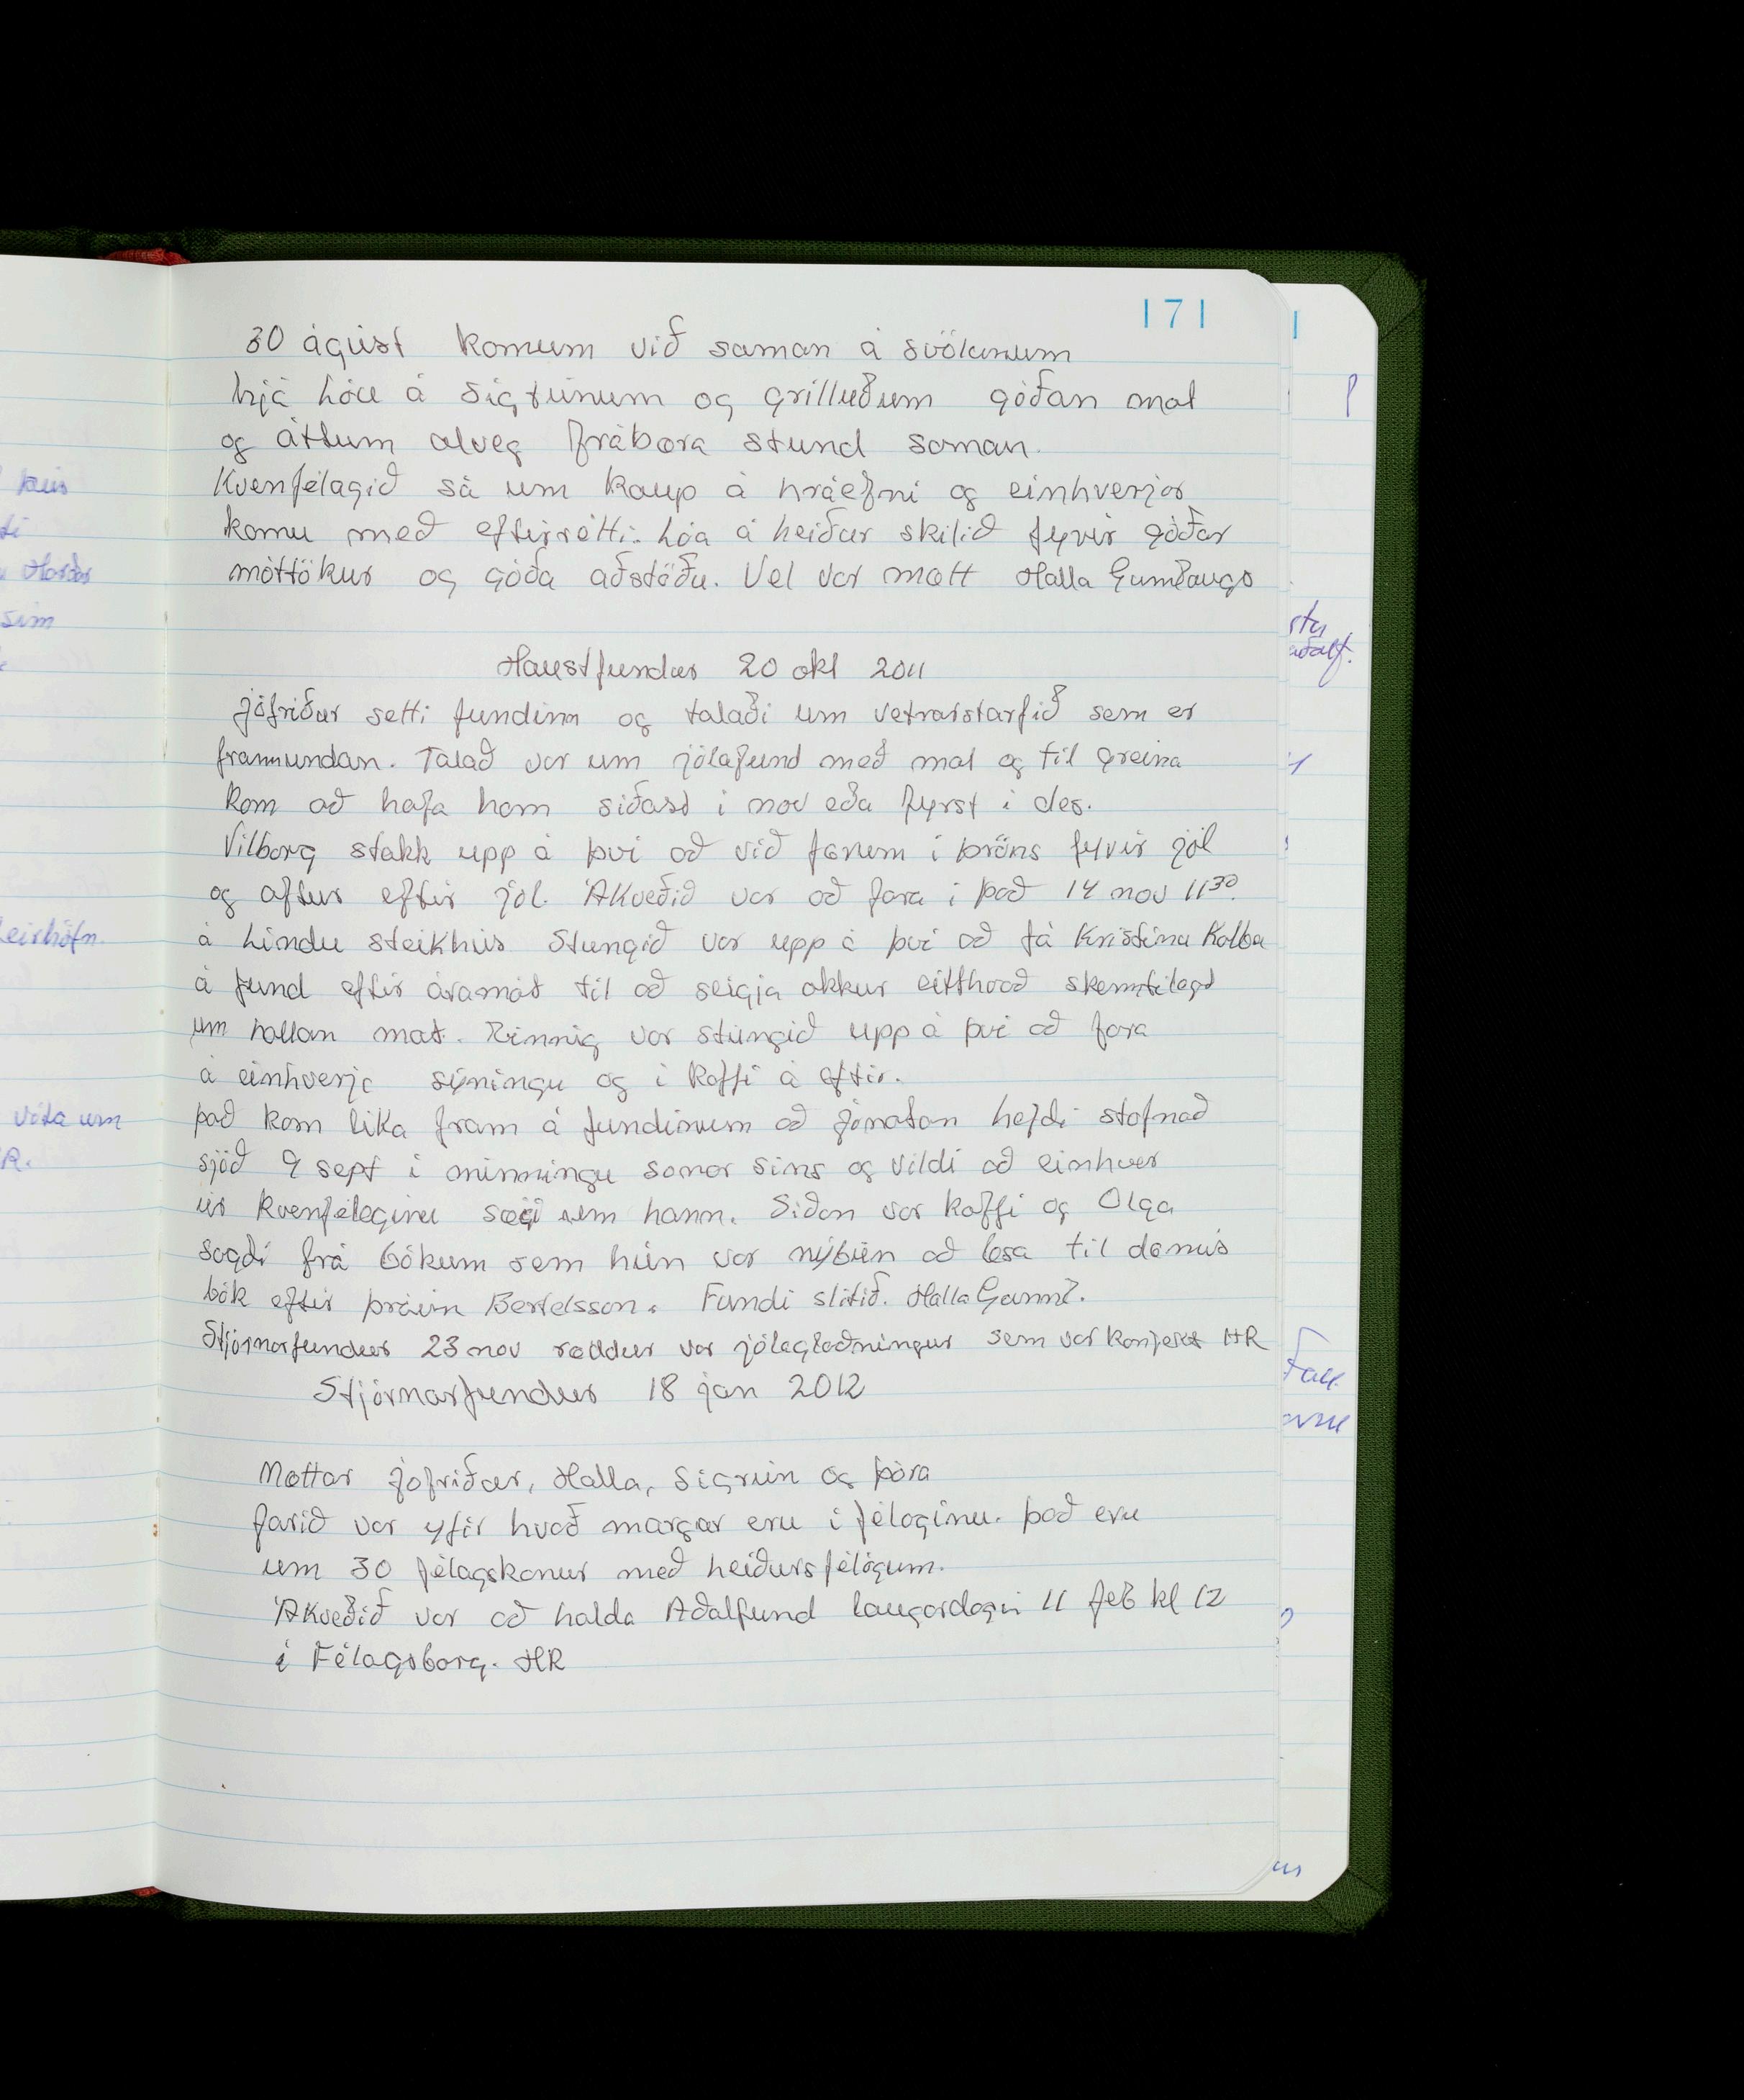 171
30 ágúst komum við saman á svölunum
hjá Lóu á Sigtúnum og grilluðum góðan mat
og áttum alveg frábæra stund saman.
Kvenfélagið sá um kaup á hráefni og einhverjar
komu með eftirrétti. Lóa á heiður skilið fyrir góðar
móttökur og góða aðstöðu. Vel var mætt Halla Gunnlaugs
Haustfundur 20 okt 2011
Jófríður setti fundinn og talaði um vetrarstarfið sem er
framundan. Talað var um jólafund með mat og til greina
kom að hafa hann síðast í nov eða fyrst í des.
Vilborg stakk upp á því að við færum í bröns fyrir jól
og aftur eftir jól. Ákveðið var að fara í það 14 nov 11 30.
á Lindu steikhús Stungið var upp á því að fá Kristínu Kolbu
á fund eftir áramót til að seigja okkur eitthvað skemmtilegt
um hollan mat. Einnig var stungið upp á því að fara
á einhverja sýningu og í kaffi á eftir.
það kom líka fram á fundinum að Jónatan hefdi stofnað
sjóð 9 sept í minningu sonar síns og vildi að einhver
úr kvenfélaginu sægi um hann. Síðan var kaffi og Olga
sagdi frá bókum sem hún var nýbúin að lesa til dæmis
bók eftir Þráinn Bertelsson. Fundi slitið. Halla Gunnl.
Stjórnarfundur 23 nov ræddur var jólaglaðningur sem var konfekt HR
Stjórnarfundur 18 jan 2012
Mættar Jófríður, Halla, Sigrún og Þóra
farið var yfir hvað margar eru í félaginu. það eru
um 30 félagskonur með heiðursfélögum.
Ákveðið var að halda Aðalfund laugardagin 11 feb kl 12
í Félagsborg. HR